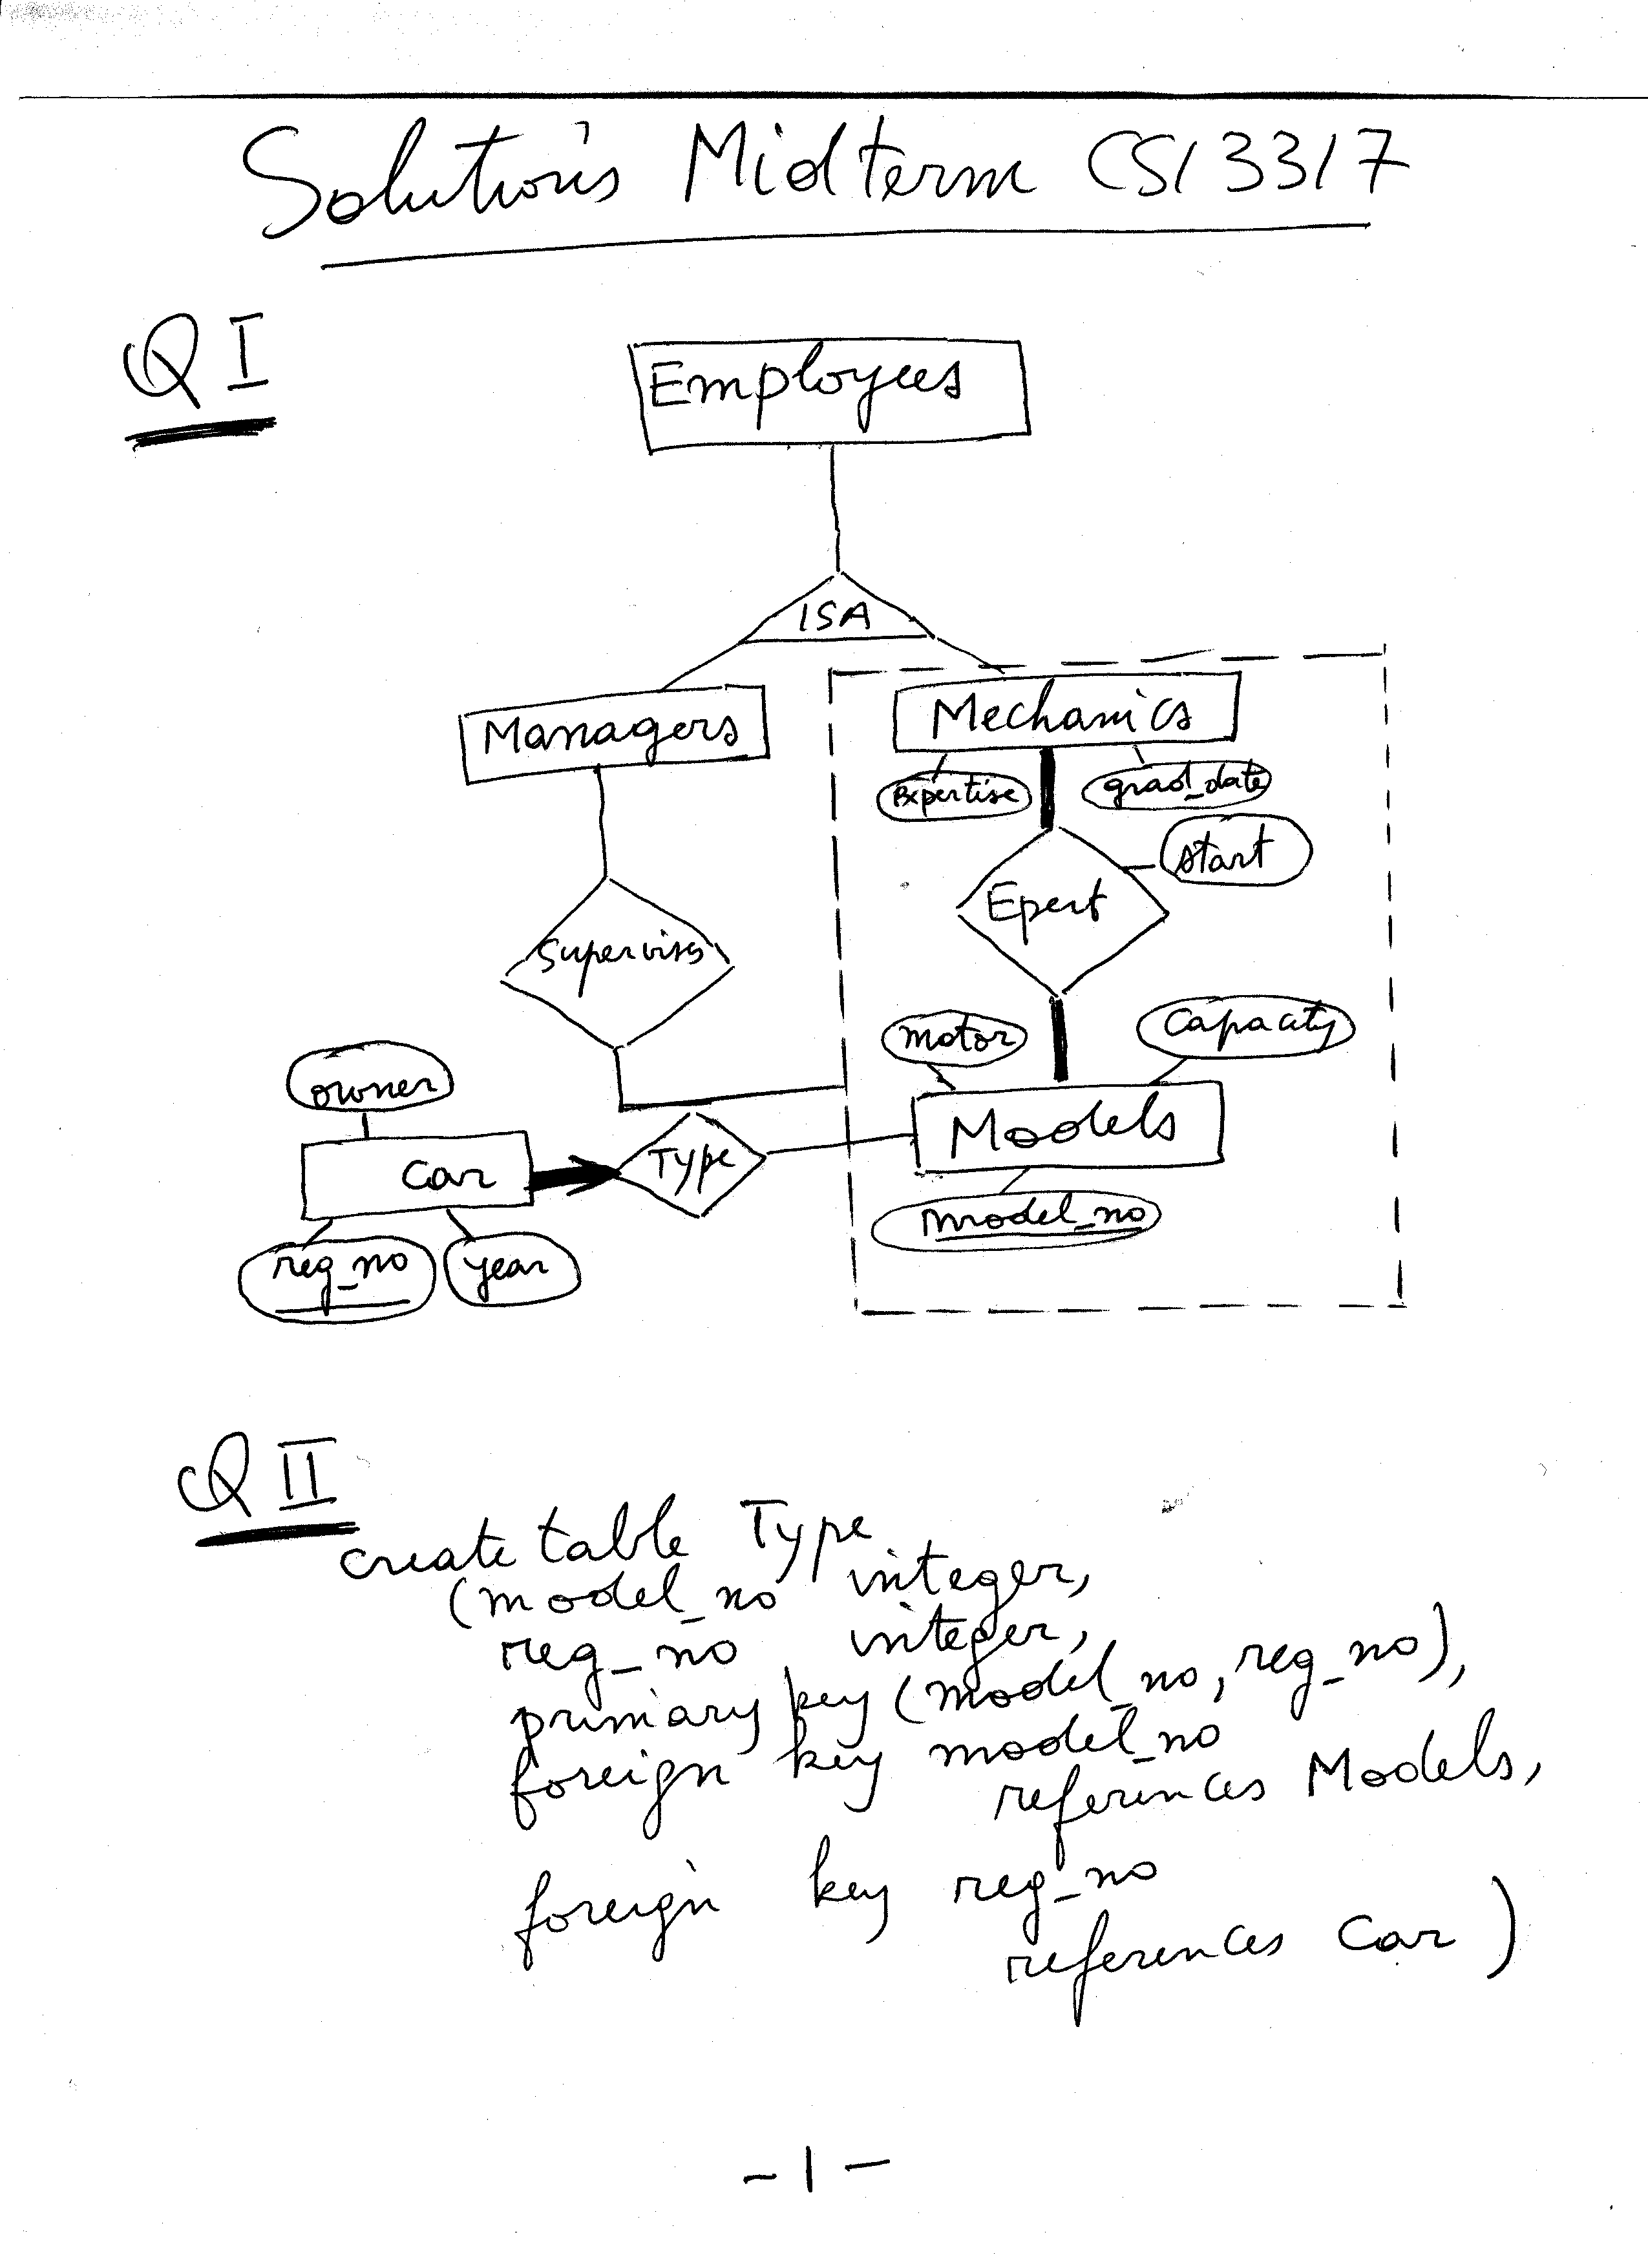 Solutions Midterm CSI 3317
Q I
Employees
ISA
Managers
Mechanics
Expertise
grad_date
start
Epert
Supervises
motor
Capacity
owner
Models
Car
Type
model_no
reg_no
year
Q II
create table Type
(model_no integer,
reg_no integer,
primary key (model_no, reg_no),
foreign key model_no
references Models,
foreign key reg_no
references Car)
- 1 -